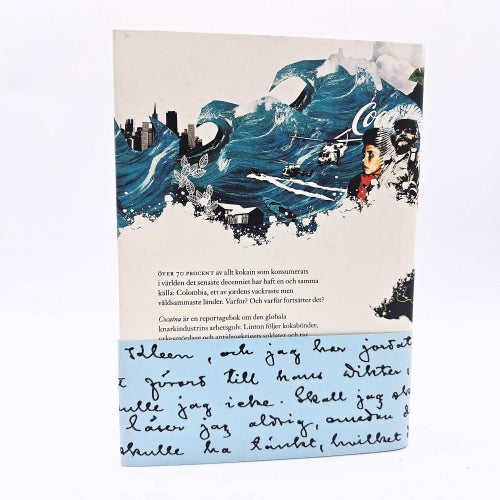 Co
ÖVER 70 PROCENT av allt kokain som konsumerats
i världen det senaste decenniet har haft en och samma
källa: Colombia, ett av jordens vackraste men
våldsammaste länder. Varför? Och varför fortsätter det?
Cocaina är en reportagebok om den globala
knarkindustrins arbetsgolv. Linton följer kokabönder,
yrkesmördare och antidrogkrigets soldater och tar
Idleen, och jag har jordat
t förord till hans dikter,
ulle jag icke. Skall jag sk
läser jag aldrig, medan d
skulle ha tänkt, hvilket